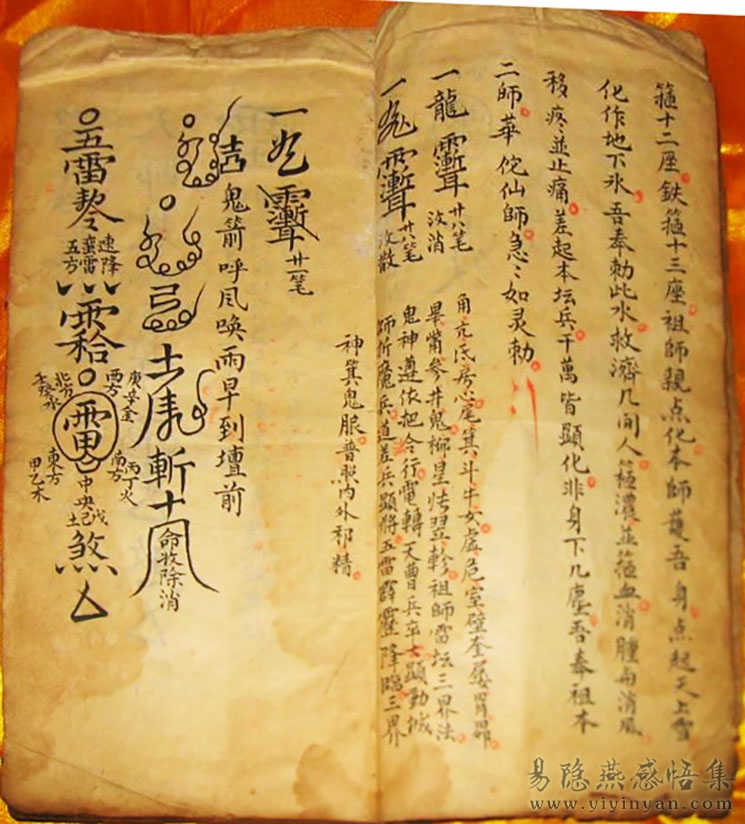 箍十二座鉄箍十三座祖師親点化本師護吾身点起天上雪
化作地下氷吾奉勅此水救濟凡間人箍濃並箍血消腫而消風
移疼並止痛差起本坛兵千萬皆顕化非身下凡塵吾奉祖本
二師華佗仙師急〻如灵勅
一龍 廿八笔 汝消
一 廿八笔 汝散
角亢氐房心尾箕斗牛女虛危室壁奎婁胃昴
畢觜參井鬼柳星張翌軫祖師雷坛三界法
鬼神遵依把令行電轉天曹兵卒士顕
師斩魔兵道差兵顕将五雷霹靂降臨三界
神箕鬼眼普照內外邪精
一 廿一笔
鬼箭呼風喚雨早到壇前
弓
斬十 命收除消
五雷
速降
蛮雷
五方
雷
西方 庚辛金
北方 壬癸水
南方 丙丁火
東方 甲乙木
中央戊己土
煞
易隐燕感悟集
www.yiyinyan.com